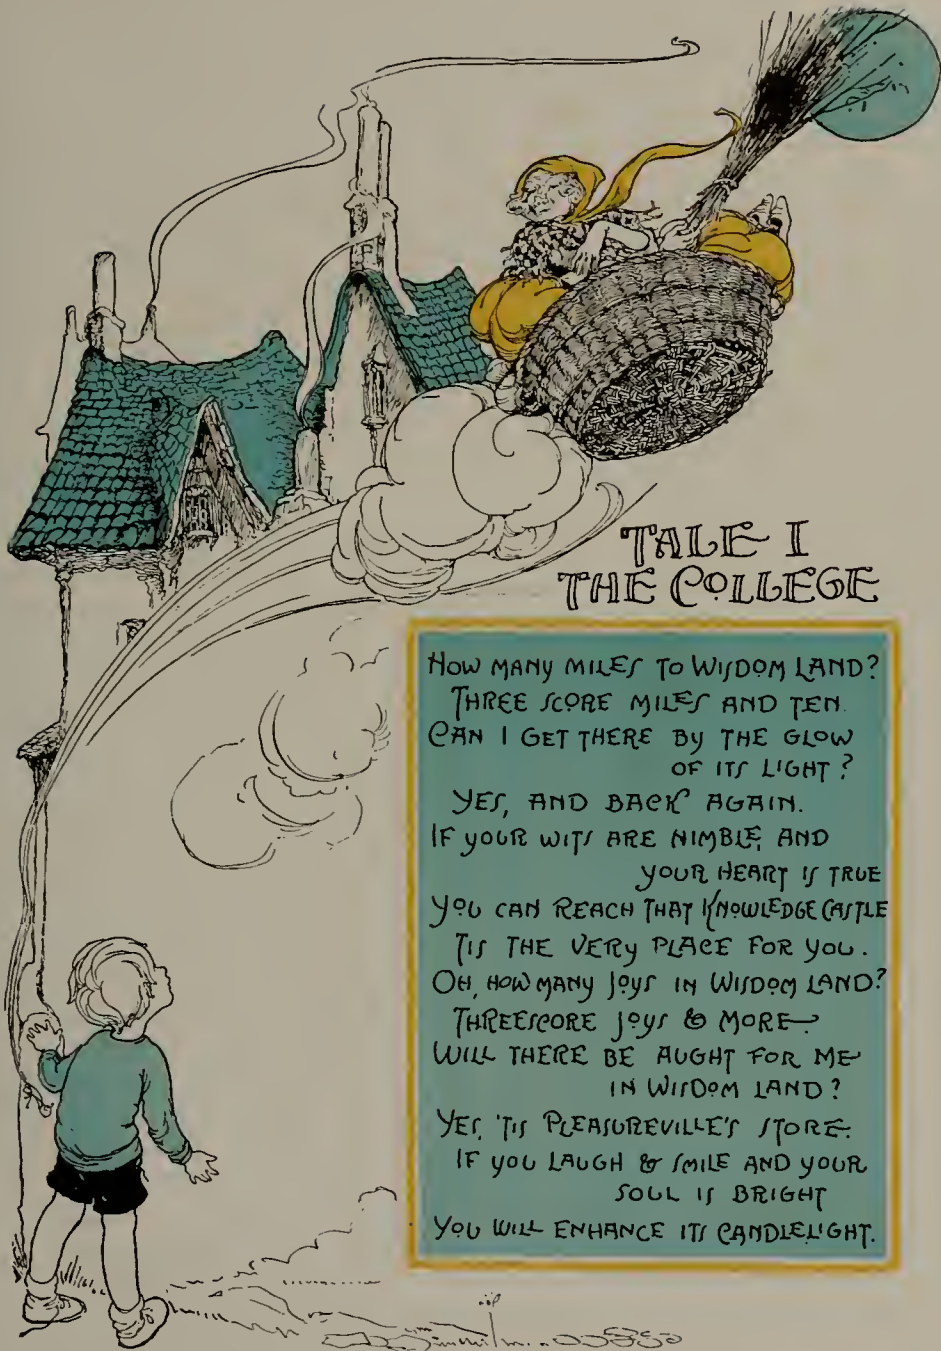 TALE I
THE COLLEGE
HOW MANY MILES TO WISDOM LAND?
THREE SCORE MILES AND TEN.
CAN I GET THERE BY THE GLOW
OF ITS LIGHT?
YES, AND BACK AGAIN.
IF YOUR WITS ARE NIMBLE, AND
YOUR HEART IS TRUE
YOU CAN REACH THAT KNOWLEDGE CASTLE
TIS THE VERY PLACE FOR YOU.
OH, HOW MANY JOYS IN WISDOM LAND?
THREESCORE JOYS & MORE.
WILL THERE BE AUGHT FOR ME
IN WISDOM LAND?
YES, 'TIS PLEASUREVILLE'S STORE.
IF YOU LAUGH & SMILE AND YOUR
SOUL IS BRIGHT
YOU WILL ENHANCE ITS CANDLELIGHT.